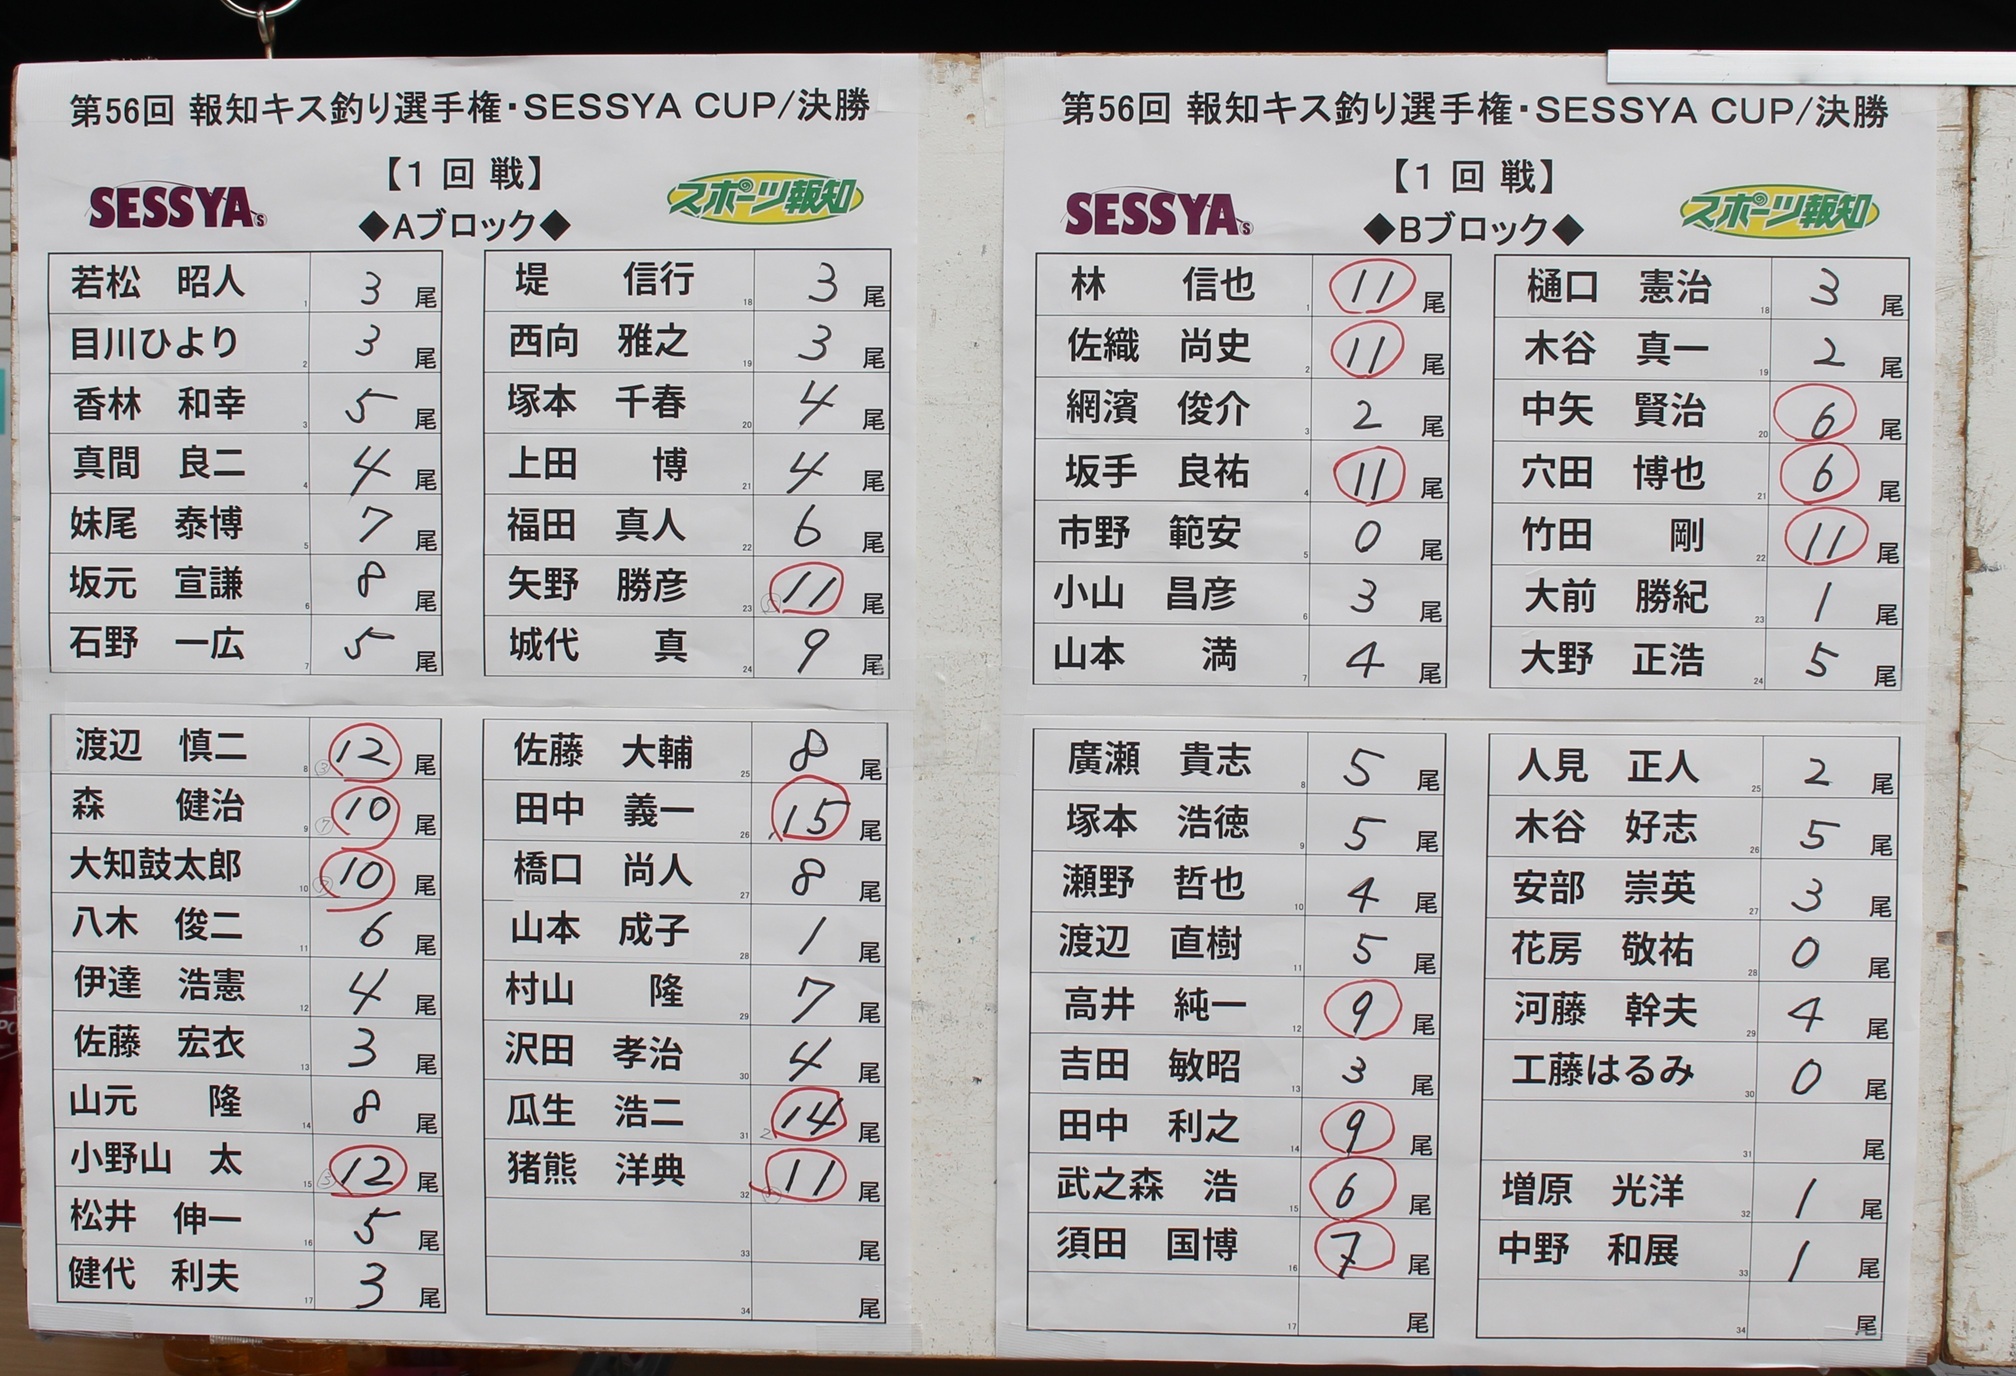 第56回 報知キス釣り選手権・SESSYA CUP/決勝
【1回戦】
SESSYA'S
スポーツ報知
◆Aブロック◆
若松 昭人 1 3 尾
目川ひより 2 3 尾
香林 和幸 3 5 尾
真間 良二 4 4 尾
妹尾 泰博 5 7 尾
坂元 宣謙 6 8 尾
石野 一広 7 5 尾
渡辺 慎二 8 ③ 12 尾
森 健治 9 ⑦ 10 尾
大知鼓太郎 10 ⑦ 10 尾
八木 俊二 11 6 尾
伊達 浩憲 12 4 尾
佐藤 宏衣 13 3 尾
山元 隆 14 8 尾
小野山 太 15 ③ 12 尾
松井 伸一 16 5 尾
健代 利夫 17 3 尾
堤 信行 18 3 尾
西向 雅之 19 3 尾
塚本 千春 20 4 尾
上田 博 21 4 尾
福田 真人 22 6 尾
矢野 勝彦 23 ⑤ 11 尾
城代 真 24 9 尾
佐藤 大輔 25 8 尾
田中 義一 26 15 尾
橋口 尚人 27 8 尾
山本 成子 28 1 尾
村山 隆 29 7 尾
沢田 孝治 30 4 尾
瓜生 浩二 31 2 14 尾
猪熊 洋典 32 11 尾
33 尾
34 尾
第56回 報知キス釣り選手権・SESSYA CUP/決勝
【1回戦】
SESSYA'S
スポーツ報知
◆Bブロック◆
林 信也 1 11 尾
佐織 尚史 2 11 尾
網濱 俊介 3 2 尾
坂手 良祐 4 11 尾
市野 範安 5 0 尾
小山 昌彦 6 3 尾
山本 満 7 4 尾
廣瀬 貴志 8 5 尾
塚本 浩徳 9 5 尾
瀬野 哲也 10 4 尾
渡辺 直樹 11 5 尾
高井 純一 12 9 尾
吉田 敏昭 13 3 尾
田中 利之 14 9 尾
武之森 浩 15 6 尾
須田 国博 16 7 尾
17 尾
樋口 憲治 18 3 尾
木谷 真一 19 2 尾
中矢 賢治 20 6 尾
穴田 博也 21 6 尾
竹田 剛 22 11 尾
大前 勝紀 23 1 尾
大野 正浩 24 5 尾
人見 正人 25 2 尾
木谷 好志 26 5 尾
安部 崇英 27 3 尾
花房 敬祐 28 0 尾
河藤 幹夫 29 4 尾
工藤はるみ 30 0 尾
31 尾
増原 光洋 32 1 尾
中野 和展 33 1 尾
34 尾